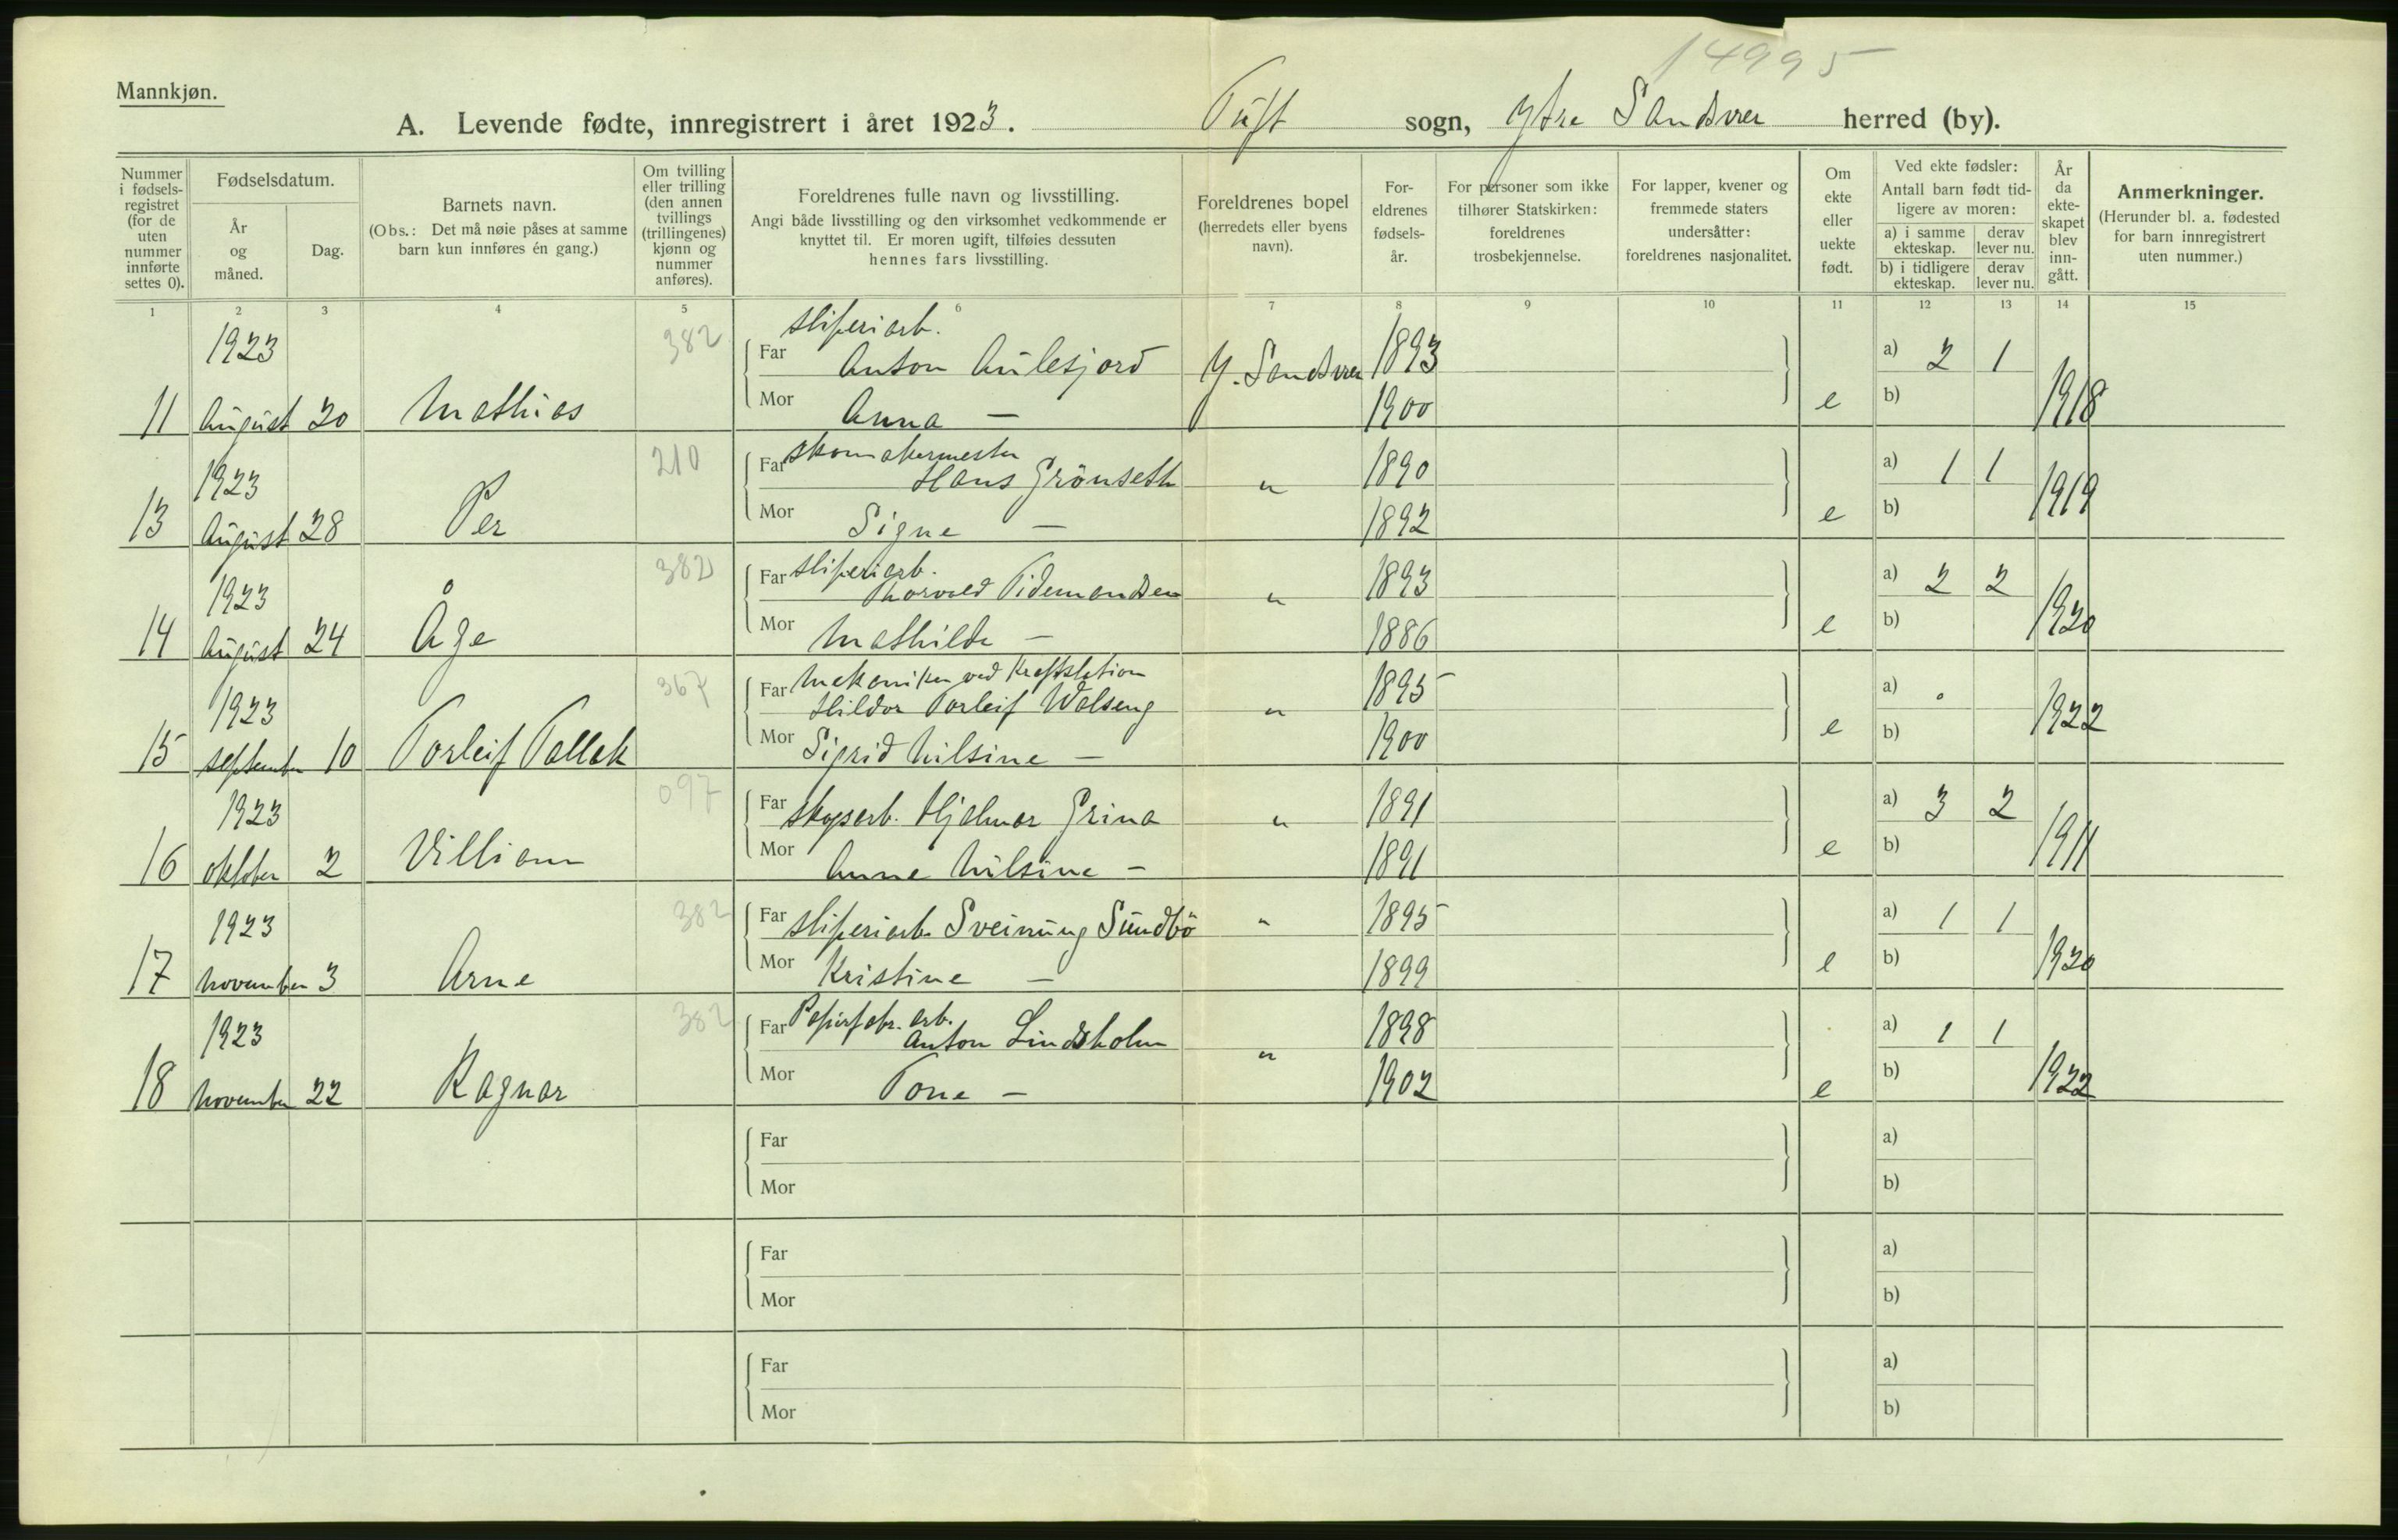 14995
Mannkjøn.
A. Levende fødte, innregistrert i året 1923. Tuft sogn, Ytre Sandsvær herred (by).
Nummer i fødselsregistret (for de uten nummer innførte settes 0).
Fødselsdatum.
År og måned.
Dag.
Barnets navn.
(Obs.: Det må nøie påses at samme barn kun innføres én gang.)
Om tvilling eller trilling (den annen tvillings (trillingenes) kjønn og nummer anføres).
Foreldrenes fulle navn og livsstilling.
Angi både livsstilling og den virksomhet vedkommende er knyttet til. Er moren ugift, tilføies dessuten hennes fars livsstilling.
Foreldrenes bopel (herredets eller byens navn).
Foreldrenes fødselsår.
For personer som ikke tilhører Statskirken: foreldrenes trosbekjennelse.
For lapper, kvener og fremmede staters undersåtter: foreldrenes nasjonalitet.
Om ekte eller uekte født.
Ved ekte fødsler:
Antall barn født tidligere av moren:
a) i samme ekteskap. derav lever nu.
b) i tidligere ekteskap. derav lever nu.
År da ekteskapet blev inngått.
Anmerkninger.
(Herunder bl. a. fødested for barn innregistrert uten nummer.)
1 2 3 4 5 6 7 8 9 10 11 12 13 14 15
1923 382 sliperiarb.
Far Anton Aulesjord Y. Sandsvær 1893 a) 2 1
11 August 20 Mathias Mor Anna — 1900 e b) 1918
210 Far skomakermester
1923 Hans Grönseth " 1890 a) 1 1
13 August 28 Per Mor Signe — 1892 e b) 1919
382 Far sliperiarb.
1923 Thorvald Tidemandsen " 1893 a) 2 2
14 August 24 Åge Mor Mathilde — 1886 e b) 1920
367 Far Mekaniker ved Kraftstation
1923 Hildor Torleif Walseng " 1895 a) 0
15 september 10 Torleif Tallak Mor Sigrid Nilsine — 1900 e b) 1922
097
1923 Far skogsarb. Hjalmar Grina " 1891 a) 3 2
16 oktober 2 Villiam Mor Anne Nilsine — 1891 e b) 1911
382
1923 Far sliperiarb. Sveinung Sundbö " 1895 a) 1 1
17 november 3 Arne Mor Kristine — 1899 e b) 1920
382 Far Papirfabr. arb.
1923 Anton Lindsholm " 1898 a) 1 1
18 November 22 Ragnar Mor Tone — 1902 e b) 1922
Far a)
Mor b)
Far a)
Mor b)
Far a)
Mor b)